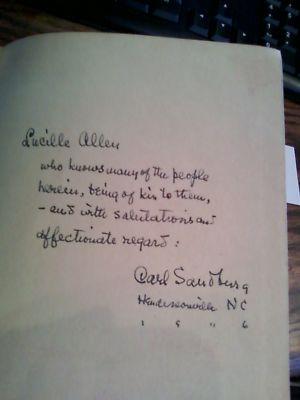 Lucille Allen
who knows many of the people
herein, being of kin to them,
- and with salutations and
affectionate regard:
Carl Sandburg
Hendersonville NC
1 9 6